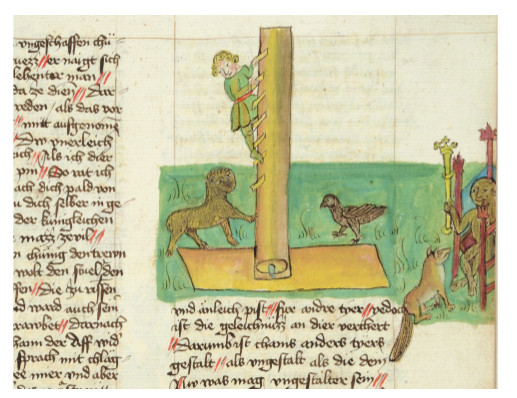 ungeschaffen chü
uezz er naigt sich
lebentter man
da ze dien Aer
reden als das vor
mitt aufgenome
Diw unerleich
ach Als ich der
pin So rat ich
ach dich pald von
u dich selber in ge
der künigleichen
mazz zevil
n chünig den tyern
wolt den soielden
sen die zu rissen
d ward auch sein
rawbet darnach
ham der Aff und
sprach mit chlag
ee mer und aber
und anleich pist für andre tyer yedoch
ist die geleichnüzz an dier verchert
Darumb ist chains anders tyers
gestalt als ungestalt als die dein
Nw was mag ungestalter sein